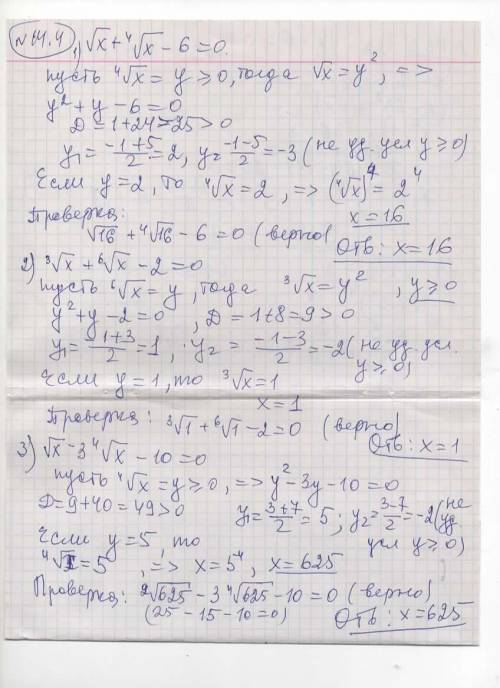 №14.4 1) √x + ⁴√x - 6 = 0.
пусть ⁴√x = y ⩾ 0, тогда √x = y², =>
y² + y - 6 = 0
D = 1 + 24 = 25 > 0
y₁ = (-1+5)/2 = 2, y₂ = (-1-5)/2 = -3 (не уд. усл y ⩾ 0)
Если y = 2, то ⁴√x = 2, => (⁴√x)⁴ = 2⁴
x = 16
Проверка:
√16 + ⁴√16 - 6 = 0 (верно)
Отв: x = 16
2) ³√x + ⁶√x - 2 = 0
пусть ⁶√x = y, тогда ³√x = y², y ⩾ 0
y² + y - 2 = 0, D = 1 + 8 = 9 > 0
y₁ = (-1+3)/2 = 1; y₂ = (-1-3)/2 = -2 (не уд. усл.
y ⩾ 0)
Если y = 1, то ³√x = 1
x = 1
Проверка: ³√1 + ⁶√1 - 2 = 0 (верно)
Отв: x = 1
3) √x - 3 ⁴√x - 10 = 0
пусть ⁴√x = y ⩾ 0, => y² - 3y - 10 = 0
D = 9 + 40 = 49 > 0 y₁ = (3+7)/2 = 5; y₂ = (3-7)/2 = -2 (не
уд
усл y ⩾ 0)
Если y = 5, то
⁴√x = 5, => x = 5⁴, x = 625
Проверка: ²√625 - 3 ⁴√625 - 10 = 0 (верно)
(25 - 15 - 10 = 0) Отв: x = 625